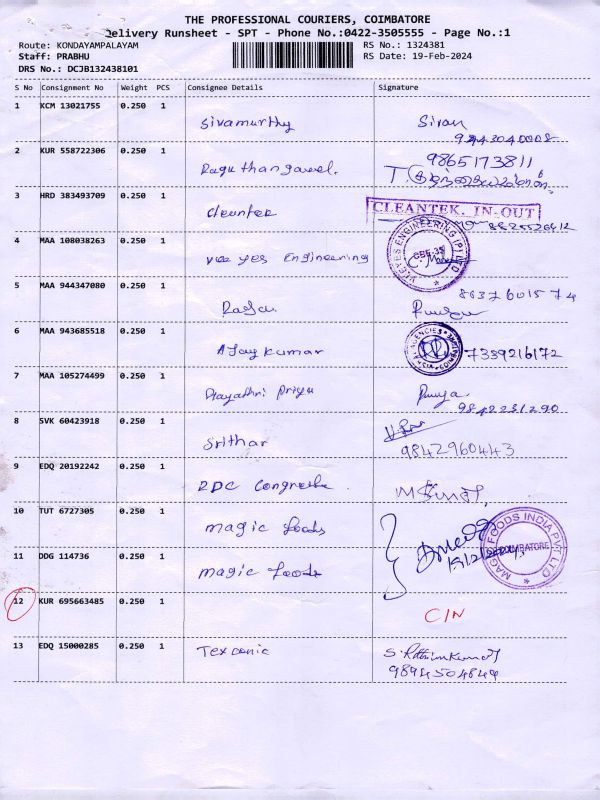 THE PROFESSIONAL COURIERS, COIMBATORE
Delivery Runsheet - SPT - Phone No.:0422-3505555 - Page No.:1
Route: KONDAYAMPALAYAM
RS No.: 1324381
Staff: PRABHU
RS Date: 19-Feb-2024
DRS No.: DCJB132438101
S No Consignment No Weight PCS Consignee Details Signature
1 KCM 13021755 0.250 1 Sivamurthy Sivan
9443040008
2 KUR 558722306 0.250 1 Raguthangavel. 9865173811
T.
3 HRD 383493709 0.250 1 cleantec CLEANTEK. IN-OUT
4 MAA 108038263 0.250 1 vee yes Engineering VEEYES ENGINEERING (P) LTD CBE-35
5 MAA 944347080 0.250 1 Raja. 8637601574
6 MAA 943685518 0.250 1 AJay Kumar 7339216172
7 MAA 105274499 0.250 1 Gayathri Priya Priya
9842231290
8 SVK 60423918 0.250 1 Srithar
9842960443
9 EDQ 20192242 0.250 1 RDC Congrete
10 TUT 6727305 0.250 1 magic foods MAGIC FOODS INDIA PVT LTD COIMBATORE
11 DDG 114736 0.250 1 magic foods 19/2/2024
12 KUR 695663485 0.250 1 C/N
13 EDQ 15000285 0.250 1 Texconic
9894504844